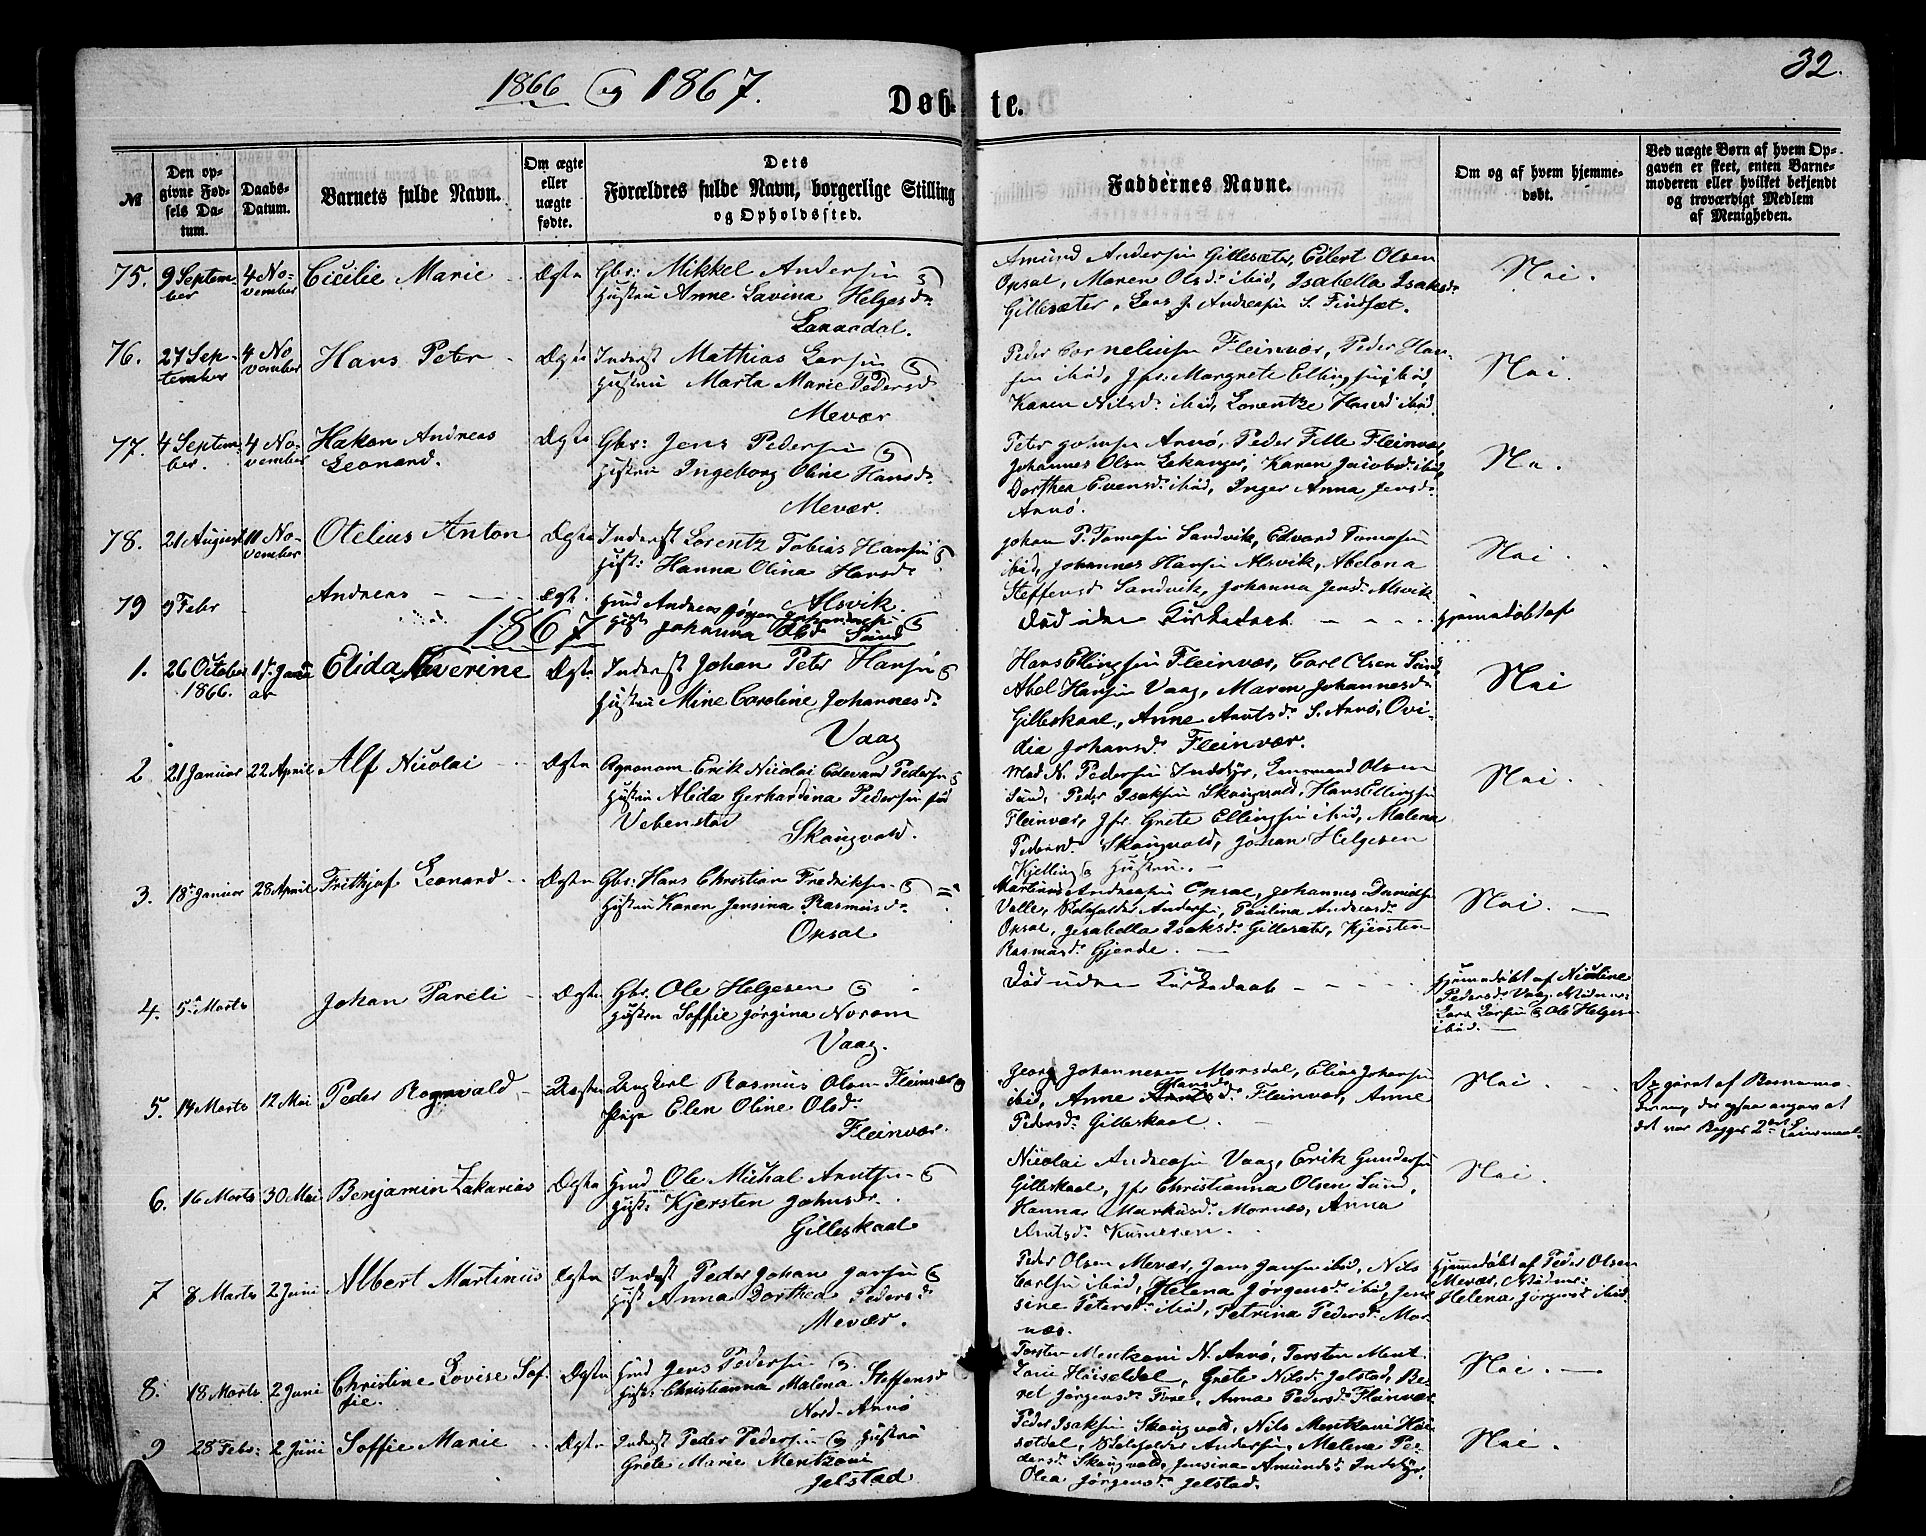 1866 og 1867.
32.
Døbte.
№
Den opgivne Fødsels Datum.
Daabs-Datum.
Barnets fulde Navn.
Om ægte eller uægte fødte.
Dets Forældres fulde Navn, borgerlige Stilling og Opholdssted.
Faddernes Navne.
Om og af hvem hjemmedøbt.
Ved uægte Børn af hvem Opgaven er skeet, enten Barnemoderen eller hvilket bekjendt og troværdigt Medlem af Menigheden.
75. 9 September 4 November Cicilie Marie Ægte Gbr: Mikkel Andersen og
Hustru Anne Lavina Helgesd:
Amund Andersen Gillesæter, Eilert Olsen
Opsal, Maren Olsd: ibid, Isabella Isaksd:
Gillesæter, Lars J. Andreasen S.
Nei.
76. 27 September 4 November Hans Peter Ægte Inderst Mathias Larsen og
Hustru Marta Marie Pedersd:
Mevær
Peder Corneliusen Fleinvær, Peder Hansen ibid, Jfr: Margrete Ellingsen ibid,
Karen Nilsd: ibid, Lorentze Hansd: ibid.
Nei.
77. 4 September 4 November Hakon Andreas
Leonard.
Ægte Gbr: Jens Pedersen og
Hustru Ingeborg Oline Hansd:
Mevær.
Peter Johnsen Arnø, Peder Fleinvær,
Johannes Olsen Lekanger, Karen Jacobsd: ibid,
Dorthea Evensd: ibid, Inger Anna Jensd:
Arnø.
Nei.
78. 21 August 11 November Otelius Anton Ægte Inderst Lorentz Tobias Hansen og
Hust: Hanna Olina Hansd:
Alsvik.
Johan P. Tomasen Sandvik, Edvard Tomasen
ibid, Johannes Hansen Alsvik, Abelona
Steffensd: Sandvik, Johanna Jensd: Alsvik
Nei.
79 9 Febr Andreas Ægt. Hmd Andreas Jørgen Johannesen og
Hust: Johanna Olsd: Sund
Død uden Kirkedaab
hjemmedøbt af
1867
1. 26 October 1866. 17. Januar Elida Severine Ægte Inderst Johan Peter Hansen og
Hustru Mine Caroline Johannesd:
Vaag
Hans Ellingsen Fleinvær, Carl Olsen Sund,
Abel Hansen Vaag, Maren Johannesd:
Gilleskaal, Anne Arntsd: S. Arnø, Ovidia Johansd: Fleinvær.
Nei
2 21 Januar 22 April Alf Nicolai Ægte Agronom Erik Nicolai Edevard Pedersen og
Hustru Alida Gerhardina Pedersen fød
Vebenstad Skaugvold.
N. Pedersen Indstyr, Lensmand Olsen
Sund, Peder Isaksen Skaugvold, Hans Ellingsen
Fleinvær, Jfr. Grete Ellingsen ibid, Malena
Pedersd: Skaugvold, Johan Helgesen
Kjelling og Hustru.
Nei.
3. 18 Januar 28 April Frithjof Leonard Ægte Gbr: Hans Christian Fredriksen og
Hustru Karen Jensina Rasmusd:
Opsal
Martinus Andreasen Opsal, Johannes Danielsen
Valle, Andersen, Paulina Andreasd:
Opsal, Jesabella Isaksd: Gillesæter, Kjersten
Rasmusd: Gjende.
Nei.
4. 5 Marts Johan Pareli Ægte Gbr. Ole Helgesen og
Hustru Soffie Jørgina Norom
Vaag.
Død uden Kirkedaab
Hjemmedøbt af Nicoline
Pedersd: Vaag. Vidner:
Lars Larsen og Ole Helgesen
ibid.
5. 14 Marts 12 Mai Peder Rognvald Uægte Ungkarl Rasmus Olsen Fleinvær og
Pige Elen Oline Olsd:
Fleinvær.
Georg Johannesen Morsdal, Elias Johansen
ibid, Anne Hansd: Fleinvær, Anne
Pedersd: Gilleskaal.
Nei.
Opgivet af Barnemoderen, der ogsaa angav at
det var Begges 2det Leiermaal.
6. 16 Marts 30 Mai Benjamin Zakarias Ægte Hmd Ole Michal Arntsen og
Hust: Kjersten Johnsdr.
Gilleskaal
Nicolai Andreasen Vaag, Erik Gundersen
Gilleskaal, Jfr Christianna Olsen Sund,
Hanna Markusd: Mornes, Anna
Arntsd:
Nei.
7 8 Marts 2 Juni Albert Martinus Ægte Inderst Peder Johan Jansen og
Hust Anna Dorthea Pedersd:
Mevær.
Peder Olsen Mevær, Jens Jansen ibid, Nils
Carlsen ibid, Helena Jørgensd: ibid, Jensine Petersd: ibid, Petrina Pedersd: Mornæs.
Hjemmedøbt af Peder Olsen
Mevær, Vidner:
Helena Jørgensd: ibid.
8. 18 Marts 2 Juni Christine Lovise Soffie. Ægte Hmd Jens Pedersen og
Hust: Christianna Malena Steffensd:
Nord-Arnø
Torsten Mentzoni N. Arnø, Torsten Mentzoni Høiseldal, Grete Nilsd: Jelstad, Beret Jørgensd: Fore, Anna Pedersd: Fleinvær
Nei.
9 28 Febr: 2 Juni Soffie Marie Ægte Inderst Peder Pedersen og Hustru
Grete Marie Mentzoni
Jelstad
Peder Isaksen Skaugvold, Nils Mentzoni Høiseldal, Andersen, Malena Pedersd: Skaugvold, Jensina Amundsd: Indstyr,
Olea Jørgensd: Jelstad.
Nei.